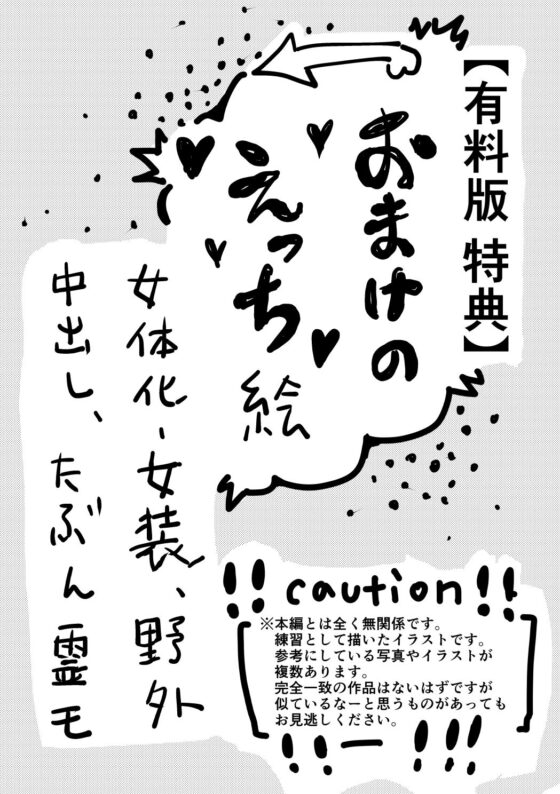 【有料版 特典】
おまけの
えっち
絵
女体化-女装、野外
中出し、たぶん霊モ
!! caution !!
※本編とは全く無関係です。
練習として描いたイラストです。
参考にしている写真やイラストが
複数あります。
完全一致の作品はないはずですが
似ているなーと思うものがあっても
お見逃しください。
!!ー!!!